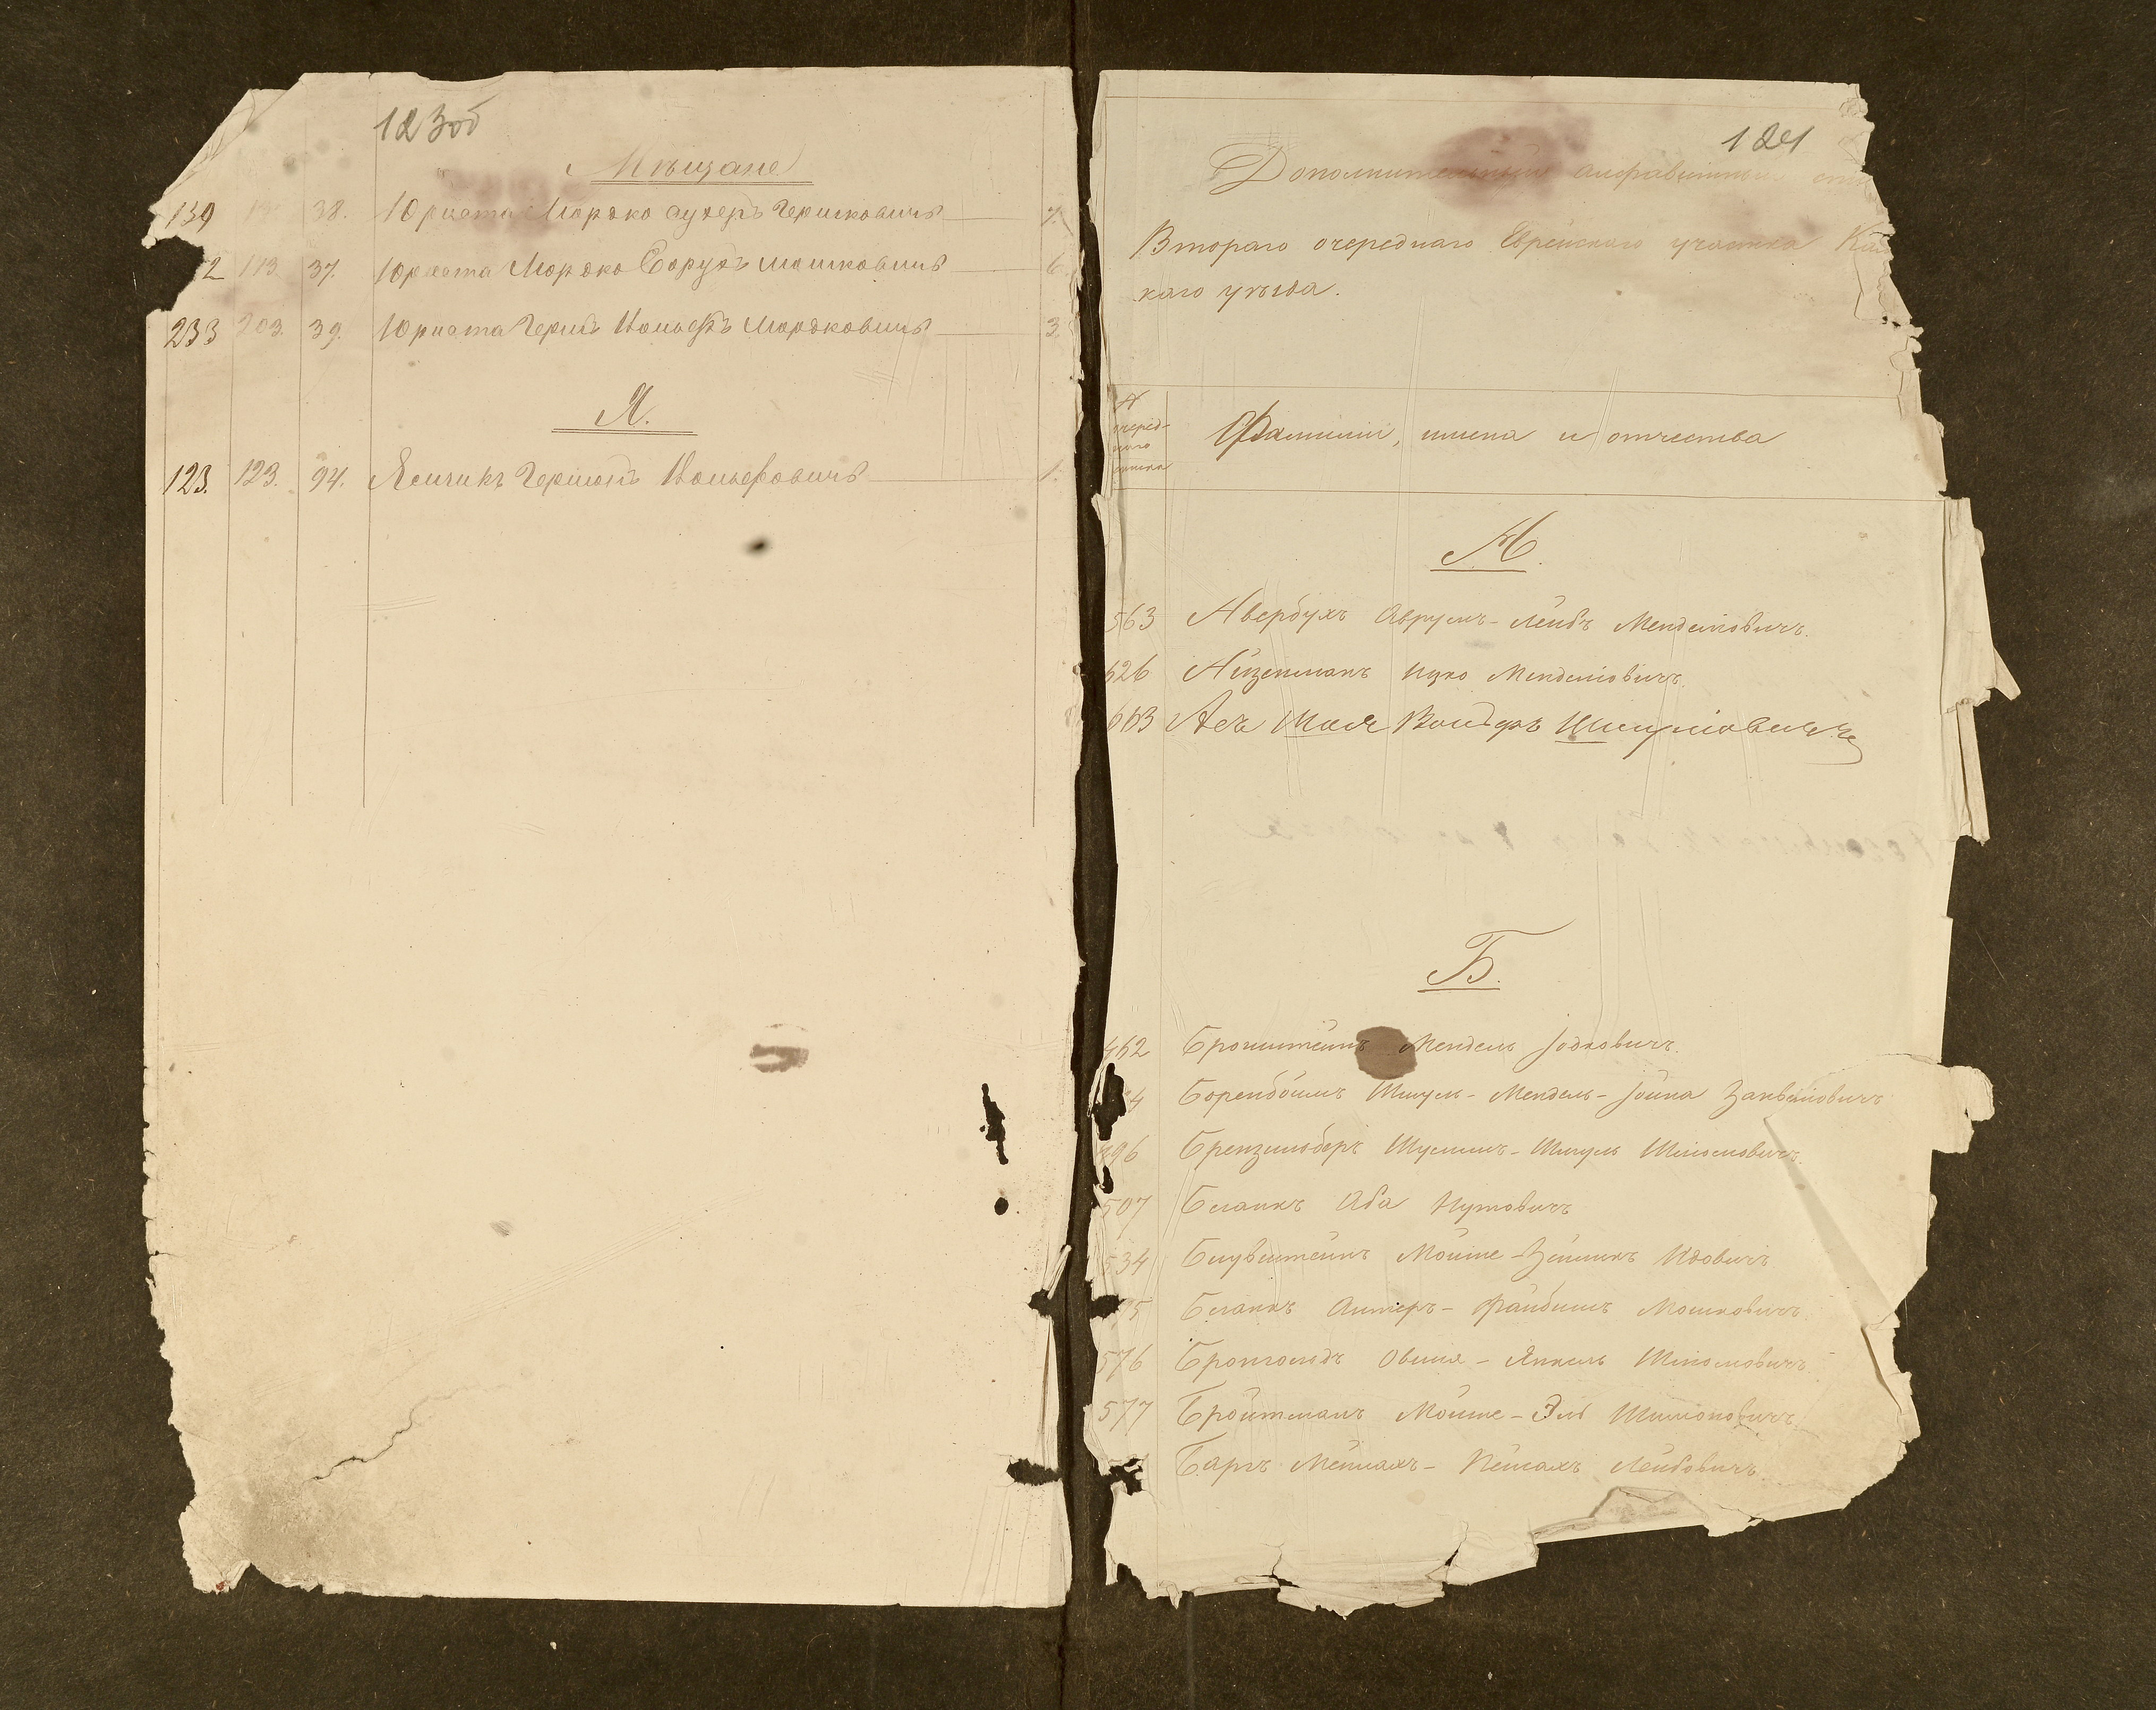 123об
Мѣщане
139 38. Юриста Мордко Аухеръ Гершковичъ 7.
2 113 37. Юриста Мордко Борухъ Мошковичъ 6.
233 203. 39. Юриста Герш Мордковичъ 3.
Я.
123. 123. 94. Ясчикъ Гершонъ Вольфовичъ 1.
124
Дополнительный алфавитный
Втораго очереднаго Еврейскаго участка
каго уѣзда.
№
очеред-
наго
списка
Фамиліи, имена и отчества
А.
563 Авербухъ Аврумъ-Лейбъ Менделіовичъ.
626 Айзенманъ Ицко Менделіовичъ.
663 Асъ Шая Вольфъ Шмуліовичъ
Б.
462 Бронштейнъ Мендель Іодковичъ.
4 Боренбоймъ Шмуль-Мендель-Іойна Занвеліовичъ
496 Брензильберъ Шулимъ-Шмуль Шліомовичъ.
507 Бланкъ Аба Нутовичъ
534 Блувштейнъ Мойше-Зейликъ Идовичъ
75 Бланкъ Антеръ-Файбишъ Мошковичъ.
576 Бронгольдъ Овшія-Янкель Шліомовичъ.
577 Бройтманъ Мойше-Эль Шимоновичъ.
Баргъ Мейлахъ-Пейсахъ Лейбовичъ.